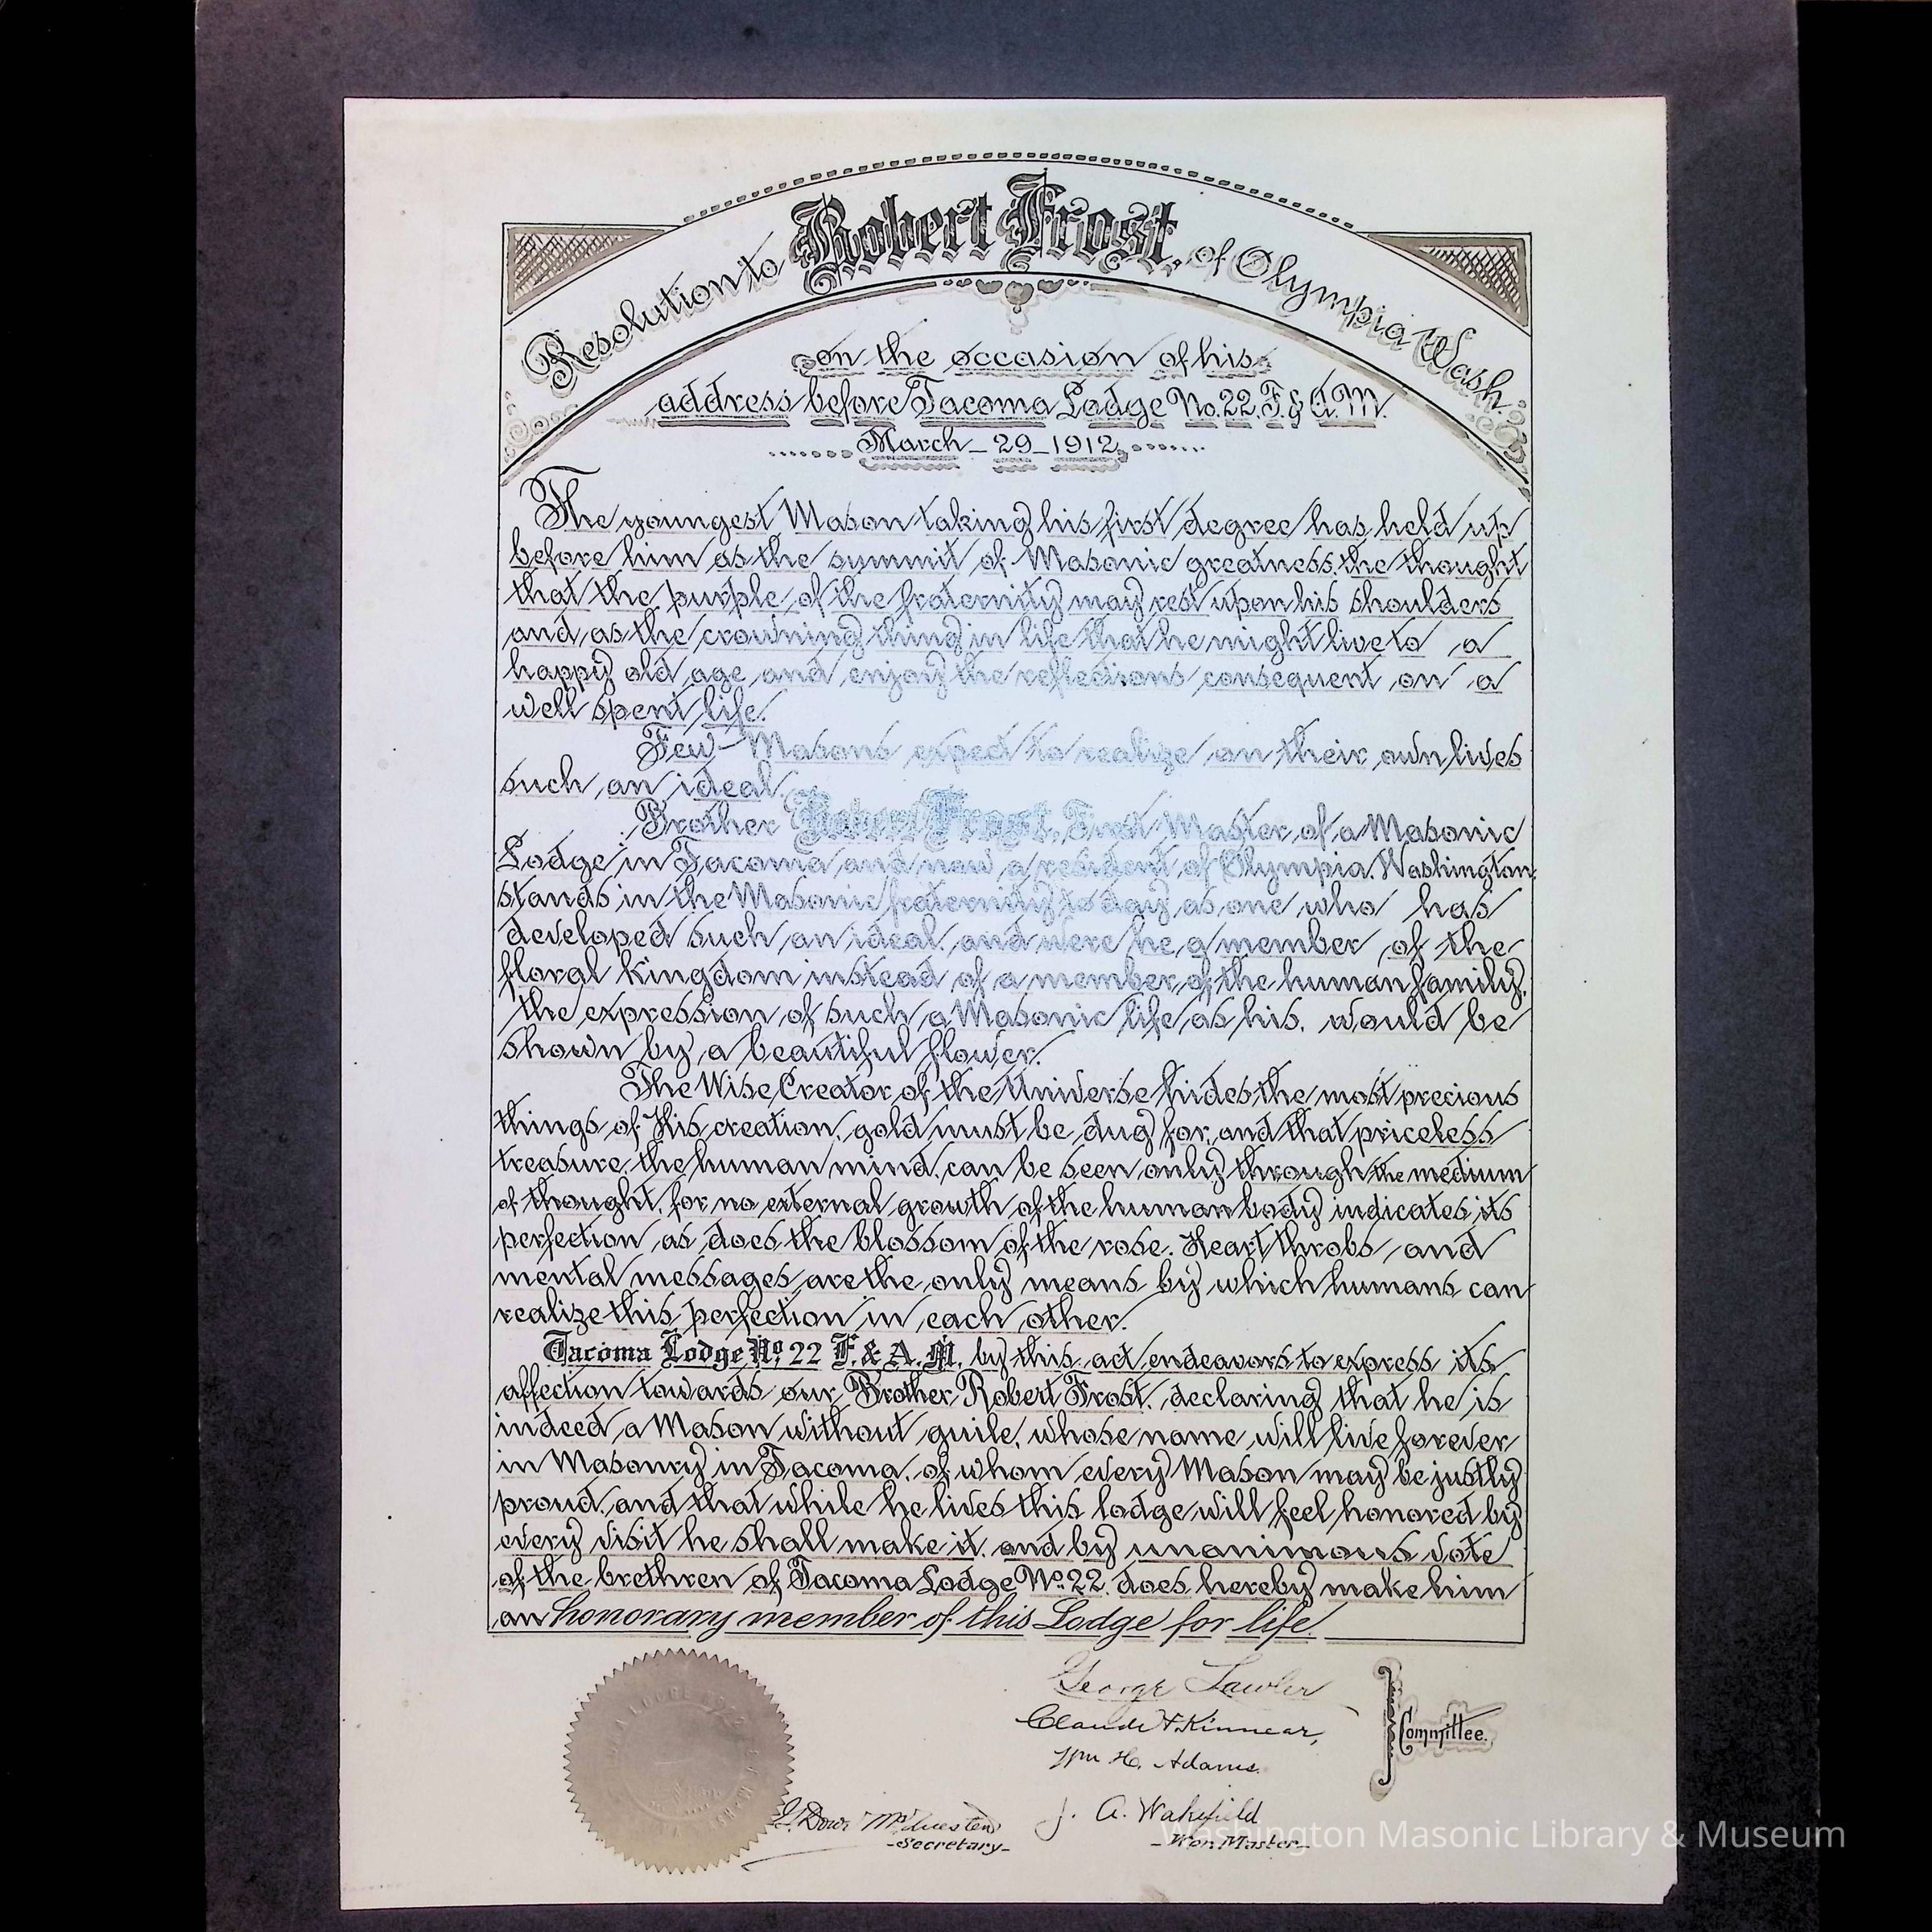 Resolution to Robert Frost, of Olympia Wash.
on the occasion of his
address before Tacoma Lodge No. 22 F. & A. M.
March – 29 – 1912
The youngest Mason taking his first degree has held up
before him as the summit of Masonic greatness, the thought
that the purple of the fraternity may rest upon his shoulders
and as the crowning thing in life that he might live to a
happy old age and enjoy the reflections consequent on a
well spent life.
Few Masons expect to realize on their own lives
such an ideal.
Brother Robert Frost, First Master of a Masonic
Lodge in Tacoma and now a resident of Olympia, Washington,
stands in the Masonic fraternity to day as one who has
developed such an ideal, and were he a member of the
floral kingdom instead of a member of the human family,
the expression of such a Masonic life as his, would be
shown by a beautiful flower.
The Wise Creator of the Universe hides the most precious
things of His creation, gold must be dug for, and that priceless
treasure, the human mind, can be seen only through the medium
of thought, for no external growth of the human body indicates its
perfection as does the blossom of the rose. Heart throbs and
mental messages are the only means by which humans can
realize this perfection in each other.
Tacoma Lodge No. 22 F. & A. M. by this act endeavors to express its
affection towards our Brother Robert Frost, declaring that he is
indeed a Mason without guile, whose name will live forever
in Masonry in Tacoma, of whom every Mason may be justly
proud, and that while he lives this lodge will feel honored by
every visit he shall make it, and by unanimous vote
of the brethren of Tacoma Lodge No. 22, does hereby make him
an honorary member of this Lodge for life.
George Lawler
Claude F. Kinnear,
Wm H. Adams.
Committee.
J. A. Wakefield
-Wor. Master-
-Secretary-
Washington Masonic Library & Museum